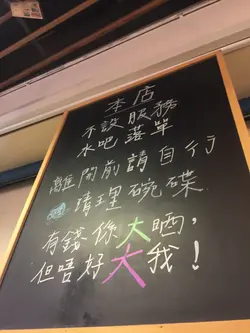 本店
不設服務
水吧落單
離開前請自行
清理碗碟
有錢係大晒，
但唔好大我！